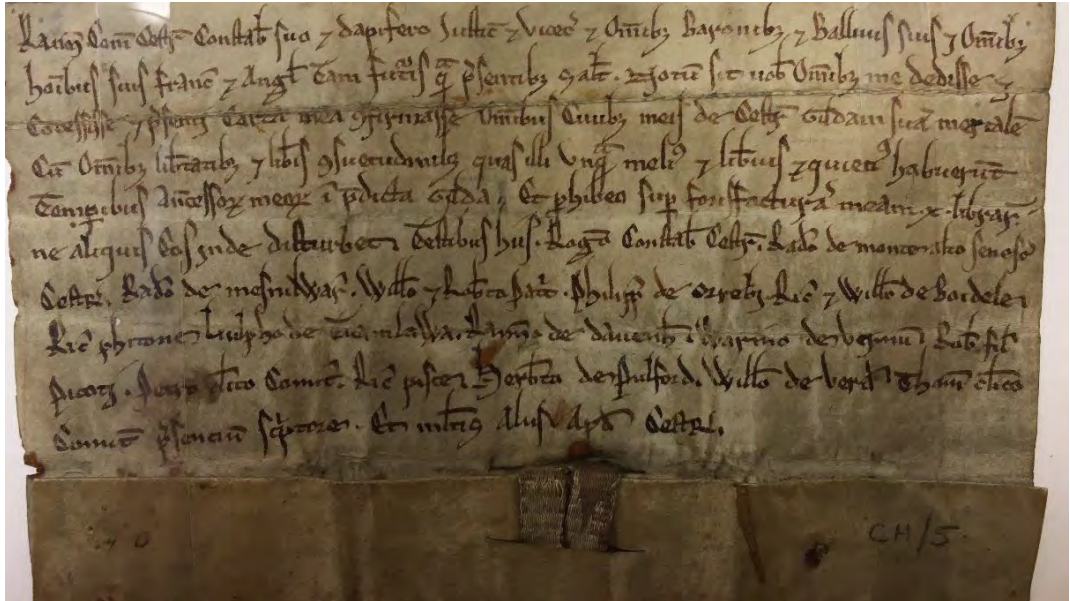 Rann̄ Com̄ Cestr̄ Constab̄ suo ⁊ dapifero Justic̄ ⁊ vicec̄ ⁊ Omīb; Baronib; ⁊ Ballivis suis ⁊ Omīb;
hoīibus suis Franc̄ ⁊ Angl̄ Tam futuris q̄m p̄sentib; Salt̄. Notum sit uob̄ Omīb; me dedisse ⁊
Cōcessisse ⁊ p̄senti Carta mea ꝯfirmasse Omnibus Ciuib; meis de Cestr̄ Gildam suā mercalē
Cū Omīb; lib̄tatib; ⁊ lib̄is ꝯsuetudinib; quas illi unq̄m meli᾿ ⁊ lib̄ius ⁊ quieti᾿ habuerūt
Temp̄ibus Ancessoꝝ meoꝝ ī p̄dicta Gilda. Et phibeo sup̄ forisfacturā meam .x. librar̄
ne aliquis Eos inde disturbet. Testibus hiis. Roḡo Constab̄ Cestr̄. Rad̄o de monte alto senesc̄
Cestr̄. Rad̄o de mesnilwar̄. Will̄o ⁊ Rob̄to Pat̄c. Philipp̄ de Orreb̄. Ric̄ ⁊ Will̄o de Boidele.
Ric̄ phitone. Liulpho de Tuemlawa. Rann̄o de dāuenh̄. Warino de uernun. Rob̄ fil̄
Picoti. Petro cl̄ico Comit̄. Ric̄ piste. Herb̄to de Pulford. Will̄o de verd̄. Thom̄ cl̄ico
Comit̄ p̄senciū sc̄ptore. Et ml̄tis Aliis Apd̄ Cestr̄.
CH/5